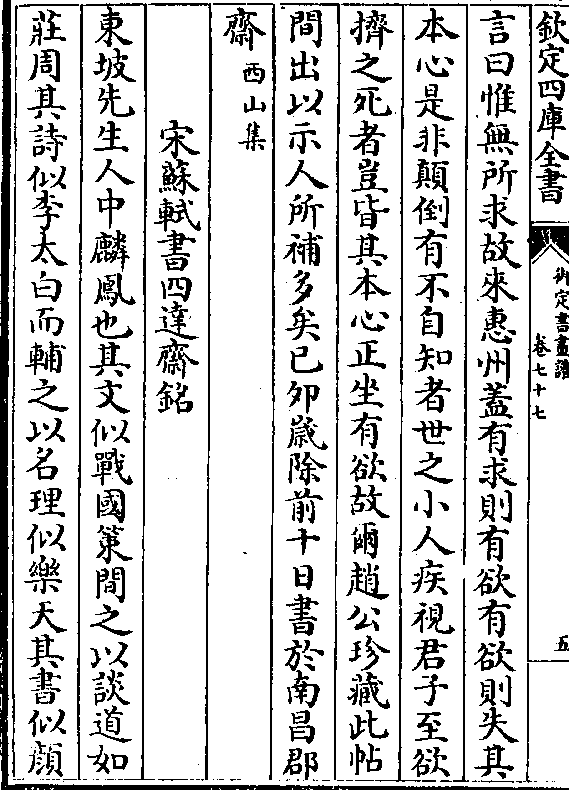 欽定四庫全書
御定書畫譜
卷七十七
五
言曰惟無所求故來惠州蓋有求則有欲有欲則失其
本心是非顛倒有不自知者世之小人疾視君子至欲
擠之死者豈皆其本心正坐有欲故爾趙公珍藏此帖
間出以示人所補多矣已夘歲除前十日書於南昌郡
齋西山集
宋蘇軾書四達齋銘
東坡先生人中麟鳳也其文似戰國策間之以談道如
莊周其詩似李太白而輔之以名理似樂天其書似顔